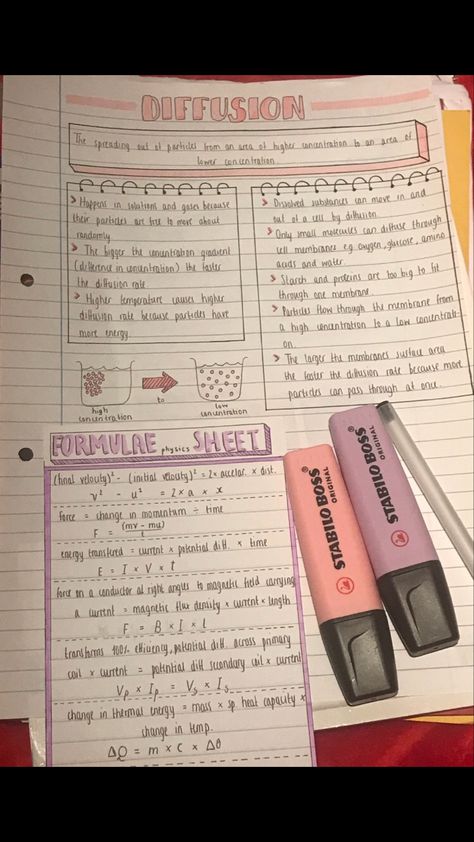 DIFFUSION
The spreading out of particles from an area of higher concentration to an area of
lower concentration
Happens in solutions and gases because
their particles are free to move about
randomly.
The bigger the concentration gradient
(difference in concentration) the faster
the diffusion rate
Higher temperature causes higher
diffusion rate because particles have
more energy.
high
concentration
to
low
concentration
Dissolved substances can move in and
out of a cell by diffusion.
Only small molecules can diffuse through
cell membranes e.g. oxygen, glucose, amino
acids and water.
Starch and proteins are too big to fit
through one membrane.
Particles flow through the membrane from
a high concentration to a low concentrati-
on.
The larger the membranes surface area
the faster the diffusion rate because more
particles can pass through at once.
FORMULAE physics SHEET
(final velocity)² - (initial velocity)² = 2 x acceler. x dist.
v² - u² = 2 x a x x
force = change in momentum ÷ time
F = (mv - mu)
t
energy transfered = current x potential diff. x time
E = I x V x t
force on a conductor at right angles to magnetic field carrying
a current = magnetic flux density x current x length
F = B x I x l
transforms 100% efficiency, potential diff across primary
coil x current = potential diff secondary coil x current
Vp x Ip = Vs x Is
change in thermal energy = mass x sp. heat capacity x
change in temp.
ΔQ = m x c x Δθ
STABILO BOSS
ORIGINAL
STABILO BOSS
ORIGINAL